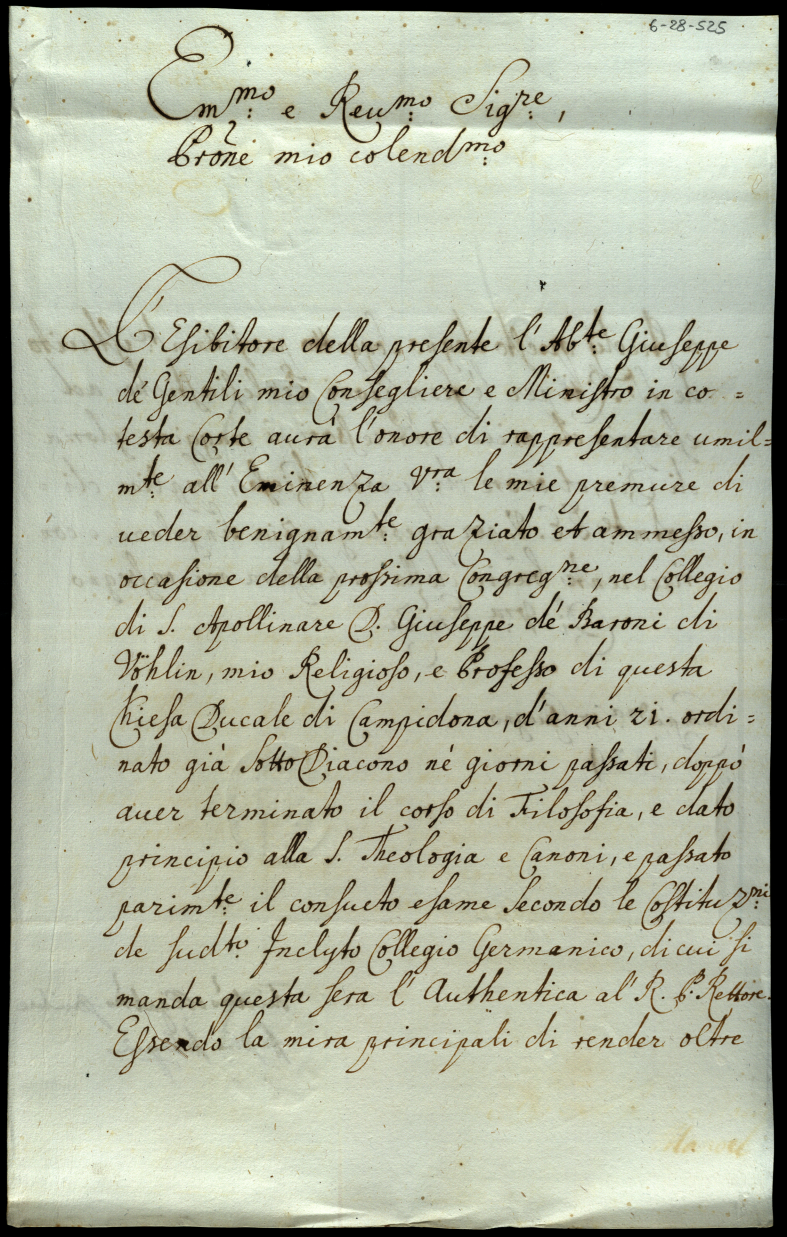 6-28-525
Em.mo e Reu.mo Sig.re,
Prõne mio colend.mo
L'Esibitore della presente l'Ab.te Giuseppe
de' Gentili mio Consegliere e Ministro in co=
testa Corte aurà l'onore di rappresentare umil=
m.te all'Eminenza V.ra le mie premure di
ueder benignam.te graziato et ammesso, in
occasione della prossima Congreg.ne, nel Collegio
di S. Apollinare D. Giuseppe dé Baroni di
Vöhlin, mio Religioso, e Professo di questa
Chiesa Ducale di Campidona, d'anni 21. ordi=
nato già SottoDiacono né giorni passati, doppò
auer terminato il corso di Filosofia, e dato
principio alla S. Theologia e Canoni, e passato
parim.te il consueto esame secondo le Costituz.ni
de sud.to Inclyto Collegio Germanico, di cui si
manda questa sera l'Authentica al' R. P. Rettore.
Essendo la mira principali di render oltre